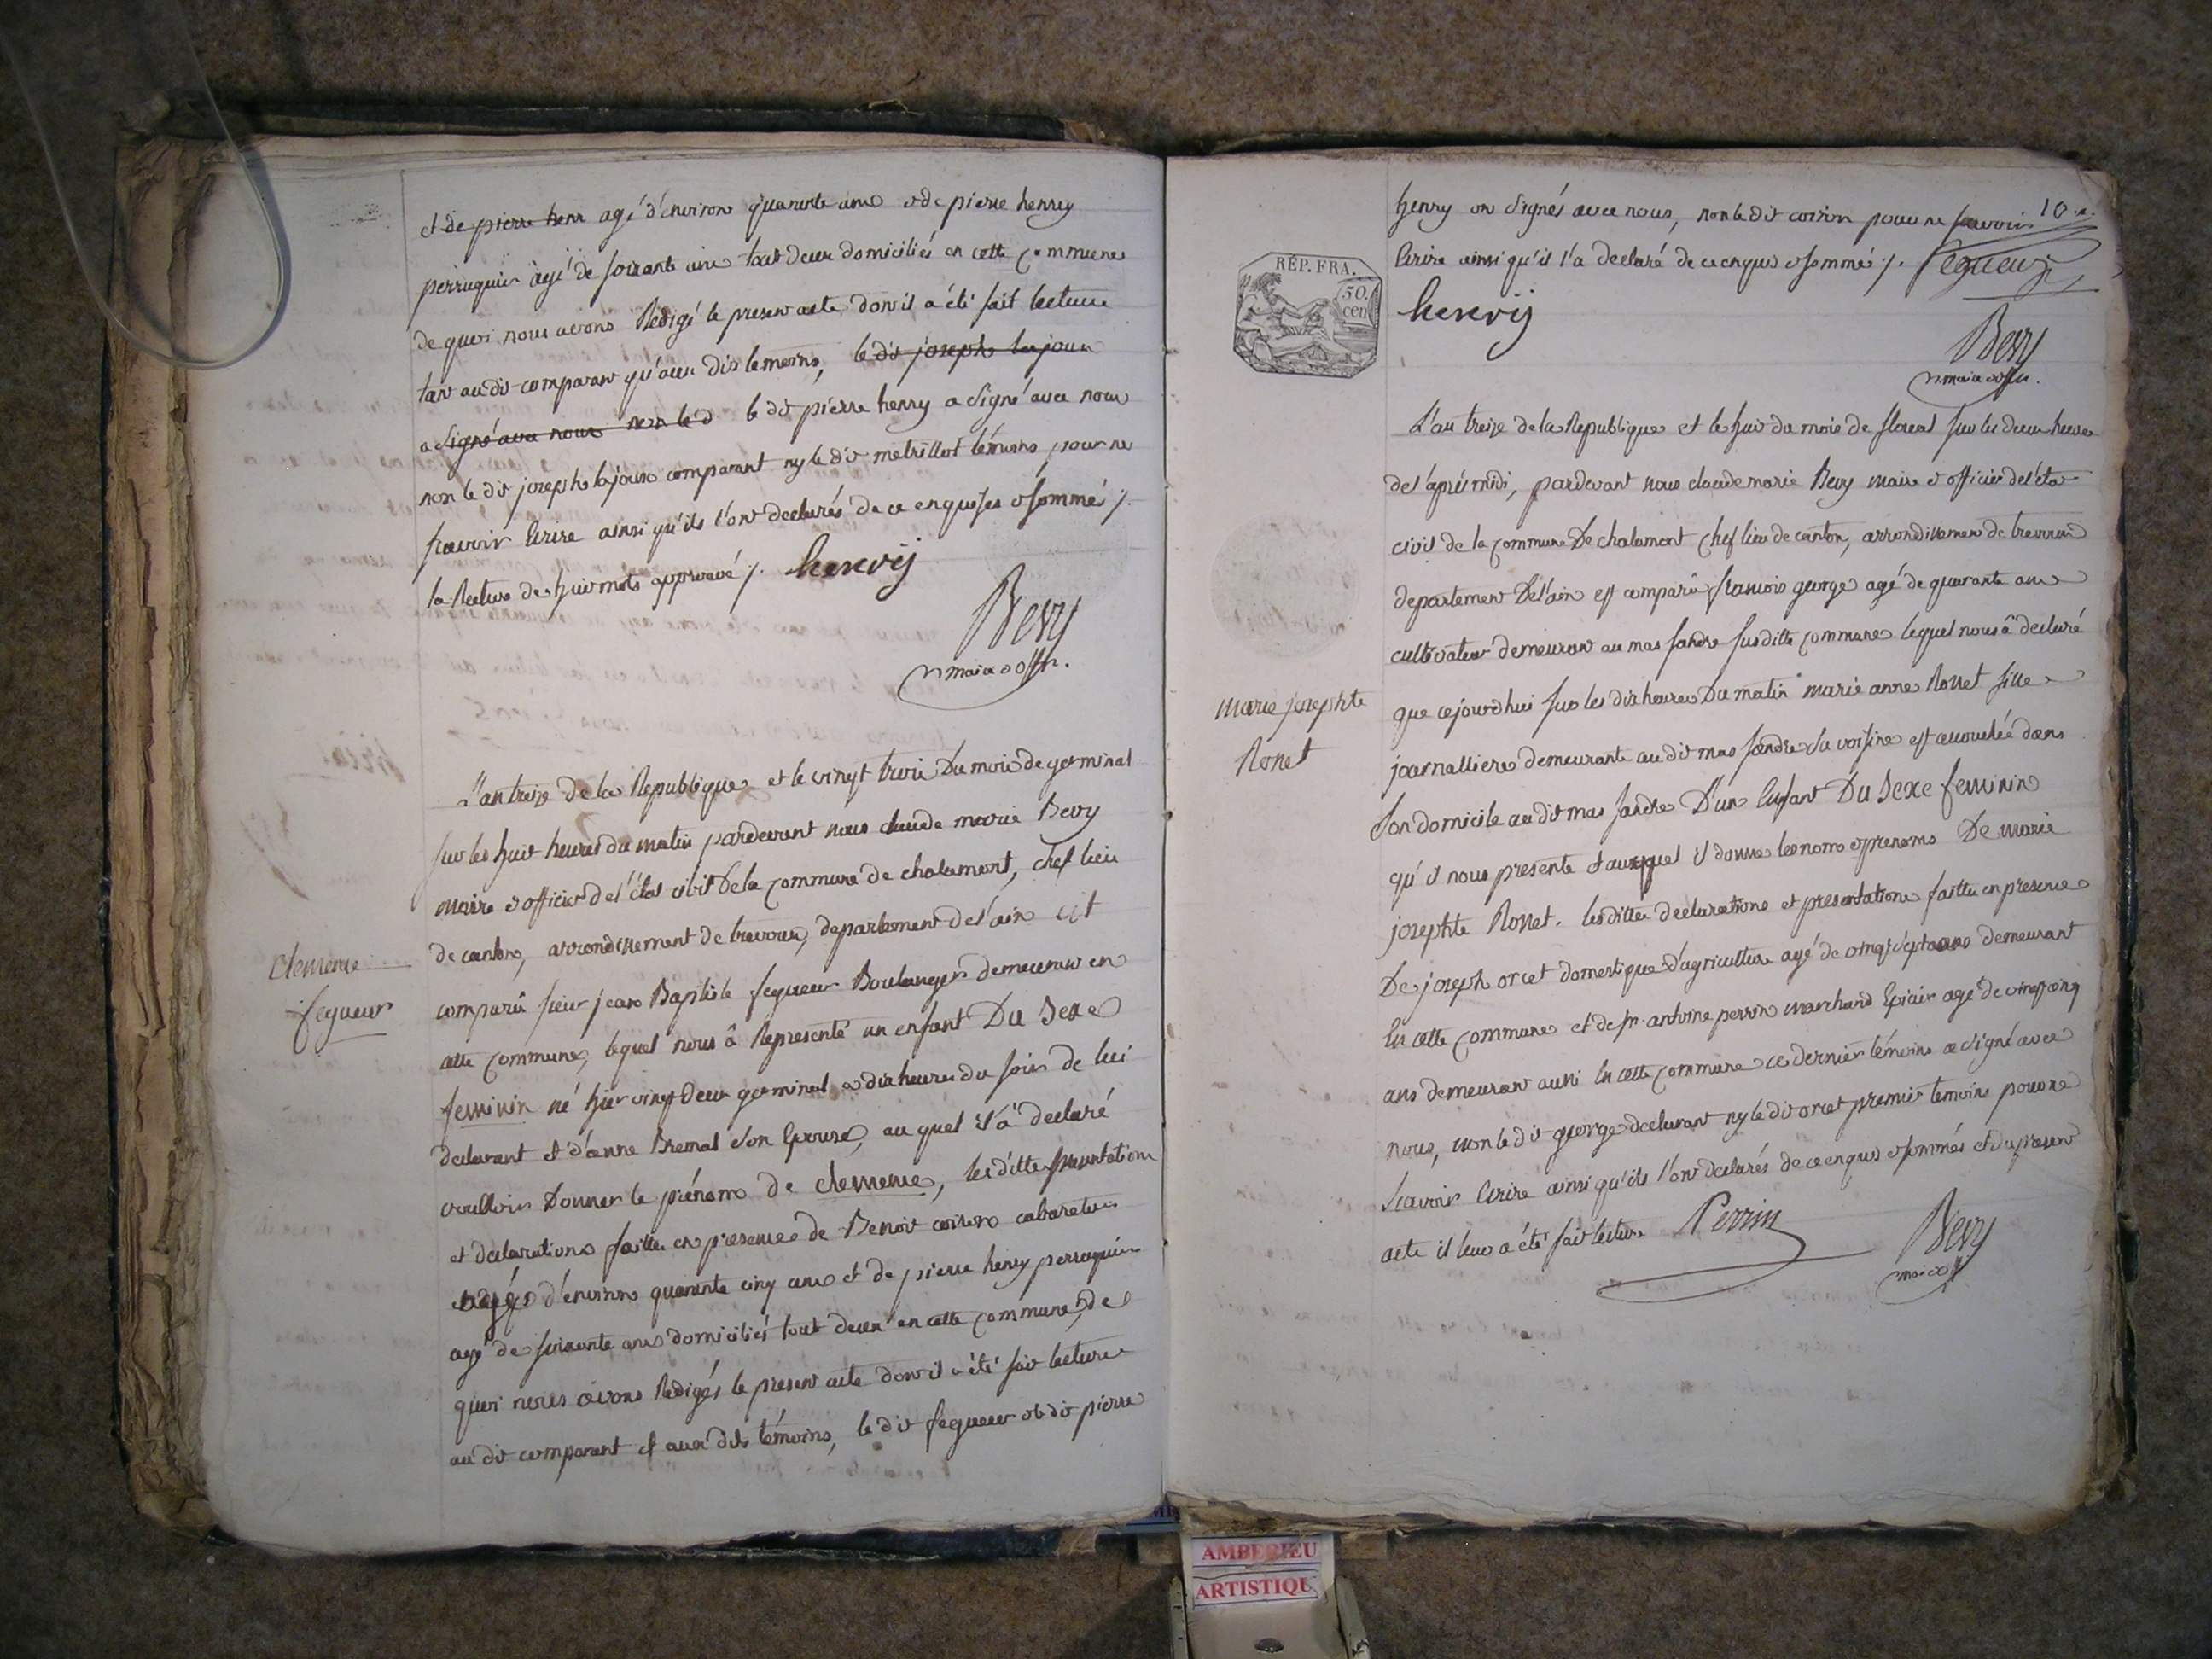 et de pierre henr agé d'environ quarante ans et de pierre henry
perruquier agé de soixante ans tout deux domiciliés en cette commune
de quoi nous avons Redigé le present acte dont il a été fait lecture
tant au dit comparant qu'aux dits temoins, le dit joseph lajoux
a signé avec nous non le d le dit pierre henry a signé avec nous
non le dit joseph lajoux comparant ny le dit metrillot témoins pour ne
sçavoir Ecrire ainsi qu'ils l'ont declarés de ce enquises et sommés /.
la Rature de huit mots approuvé /. henrij
Bevy
maire et offr.
L'an treize de la Republique et le vingt trois Du mois de germinal
sur les huit heures du matin pardevant nous claude marie Bevy
maire et officier de l'état civil De la commune de chalamont, chef lieu
de canton, arrondissement de trevoux, departement de l'ain est
clemence
fegueur
comparû sieur jean Baptiste fegueur Boulanger demeurant en
cette commune, lequel nous â Representé un enfant Du Sexe
feminin né hier vingt deux germinal a dix heures du soir de lui
declarant et d'anne Bremal son Epouse, au quel il â declaré
voulloir Donner le prénom de clemence, les dittes presentation
et declaration faittes en presence de Benoit coiron cabaretier
agé d'environ quarante cinq ans et de pierre henry perruquier
agé de soixante ans domiciliés tout deux en cette commune, de
quoi nous avons Redigés le present acte dont il a été fait lecture
au dit comparant et aux dits témoins, le dit fegueur et le dit pierre
10
henry ont signés avec nous, non le dit coiron pour ne sçavoir
Ecrire ainsi qu'il l'a declaré de ce enquis et sommé /. fegueur
RÉP. FRA.
50.
cen
henrij
Bevy
maire et offr.
L'an treize de la Republique et le huit du mois de floreal sur les deux heures
de l'après midi, pardevant nous claude marie Bevy maire et officier de l'état
civil de la commune De chalamont chef lieu de canton, arrondissement de trevoux
departement De l'ain est comparû francois george agé de quarante ans
cultivateur demeurant au mas fandre susditte commune lequel nous â declaré
marie josephte
Ronet
que cejourd'hui sur les dix heures Du matin marie anne Ronet fille
journalliere demeurante au dit mas fandre sa voisine est accouchée dans
son domicile au dit mas fandre D'un Enfant Du Sexe feminin
qu'il nous presente et auquel il donne les noms et prenoms De marie
josephte Ronet. les dittes declaration et presentation faittes en presence
De joseph orcet domestique d'agriculture agé de vingt sept ans demeurant
En cette commune et de sr. antoine perrin marchand Epicier agé de vingt cinq
ans demeurant aussi En cette commune ce dernier témoins a signé avec
nous, non le dit george declarant ny le dit orcet premier temoins pour ne
scavoir Ecrire ainsi qu'ils l'ont declarés de ce enquis et sommés et du present
acte il leur a été fait lecture Perrin
Bevy
AMBERIEU
ARTISTIQU